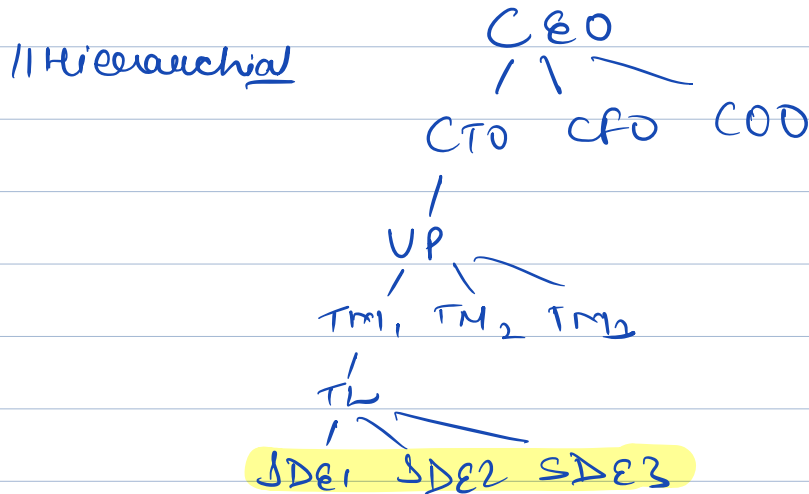 CEO
//Hierarchial
CTO CFO COO
VP
TM1 TM2 TM3
TL
SDE1 SDE2 SDE3